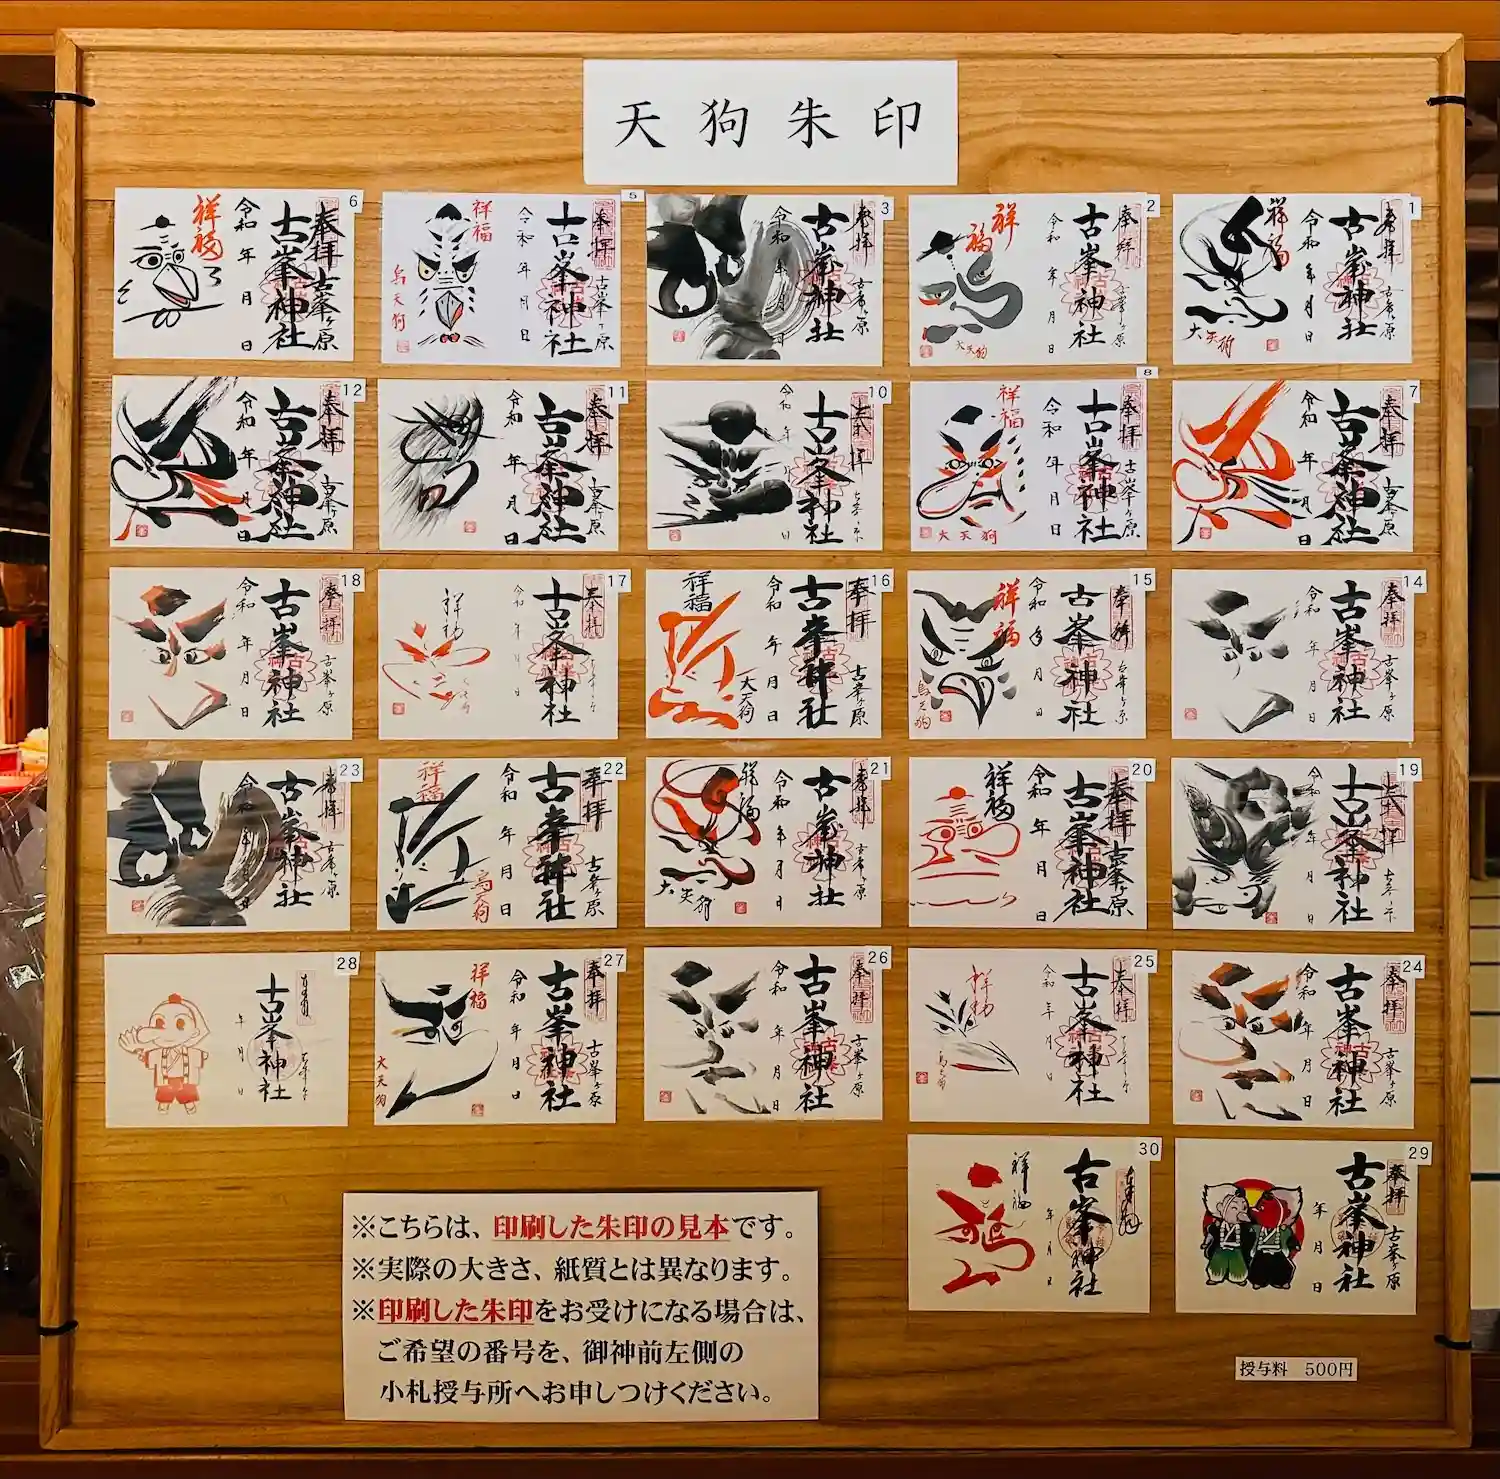 天狗朱印
1
奉拝
古峯ヶ原
古峯神社
令和 年 月 日
祥福
大天狗
2
奉拝
古峯ヶ原
古峯神社
令和 年 月 日
祥福
大天狗
3
奉拝
古峯ヶ原
古峯神社
令和 年 月 日
5
奉拝
古峯ヶ原
古峯神社
令和 年 月 日
祥福
烏天狗
6
奉拝
古峯ヶ原
古峯神社
令和 年 月 日
祥福
7
奉拝
古峯ヶ原
古峯神社
令和 年 月 日
8
奉拝
古峯ヶ原
古峯神社
令和 年 月 日
祥福
大天狗
10
古峯神社
令和 年 日
11
奉拝
古峯ヶ原
古峯神社
令和 年 月 日
12
奉拝
古峯ヶ原
古峯神社
令和 年 月 日
14
奉拝
古峯ヶ原
古峯神社
令和 年 月 日
15
奉拝
古峯ヶ原
古峯神社
令和 年 月 日
祥福
烏天狗
16
奉拝
古峯ヶ原
古峯神社
令和 年 月 日
祥福
大天狗
17
奉拝
古峯神社
令和 年 日
18
奉拝
古峯ヶ原
古峯神社
令和 年 月 日
19
古峯神社
令和 年 月 日
20
奉拝
古峯ヶ原
古峯神社
令和 年 月 日
祥福
21
奉拝
古峯ヶ原
古峯神社
令和 年 月 日
祥福
大天狗
22
奉拝
古峯ヶ原
古峯神社
令和 年 月 日
祥福
烏天狗
23
奉拝
古峯ヶ原
古峯神社
令和 年 月 日
24
奉拝
古峯ヶ原
古峯神社
令和 年 月 日
25
奉拝
古峯神社
令和 年 月 日
26
奉拝
古峯ヶ原
古峯神社
令和 年 月 日
27
奉拝
古峯ヶ原
古峯神社
令和 年 月 日
祥福
大天狗
28
古峯神社
年 月 日
29
奉拝
古峯ヶ原
古峯神社
年 月 日
30
古峯神社
年 月 日
祥福
※こちらは、印刷した朱印の見本です。
※実際の大きさ、紙質とは異なります。
※印刷した朱印をお受けになる場合は、
ご希望の番号を、御神前左側の
小札授与所へお申しつけください。
授与料 500円